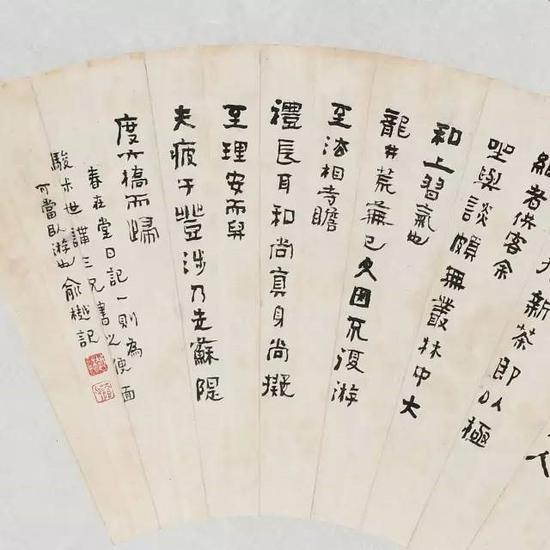 新茶即以極
細者供客余
坐與談頗無叢林中大
和上習氣也
龍井荒蕪已久因不復游
至法相寺瞻
禮長耳和尚真身尚擬
至理安而舁
夫疲于豋涉乃走蘇隄
度六橋而歸
春在堂日記一則為
駿尗世講三兄書之便面
可當臥游也俞樾記